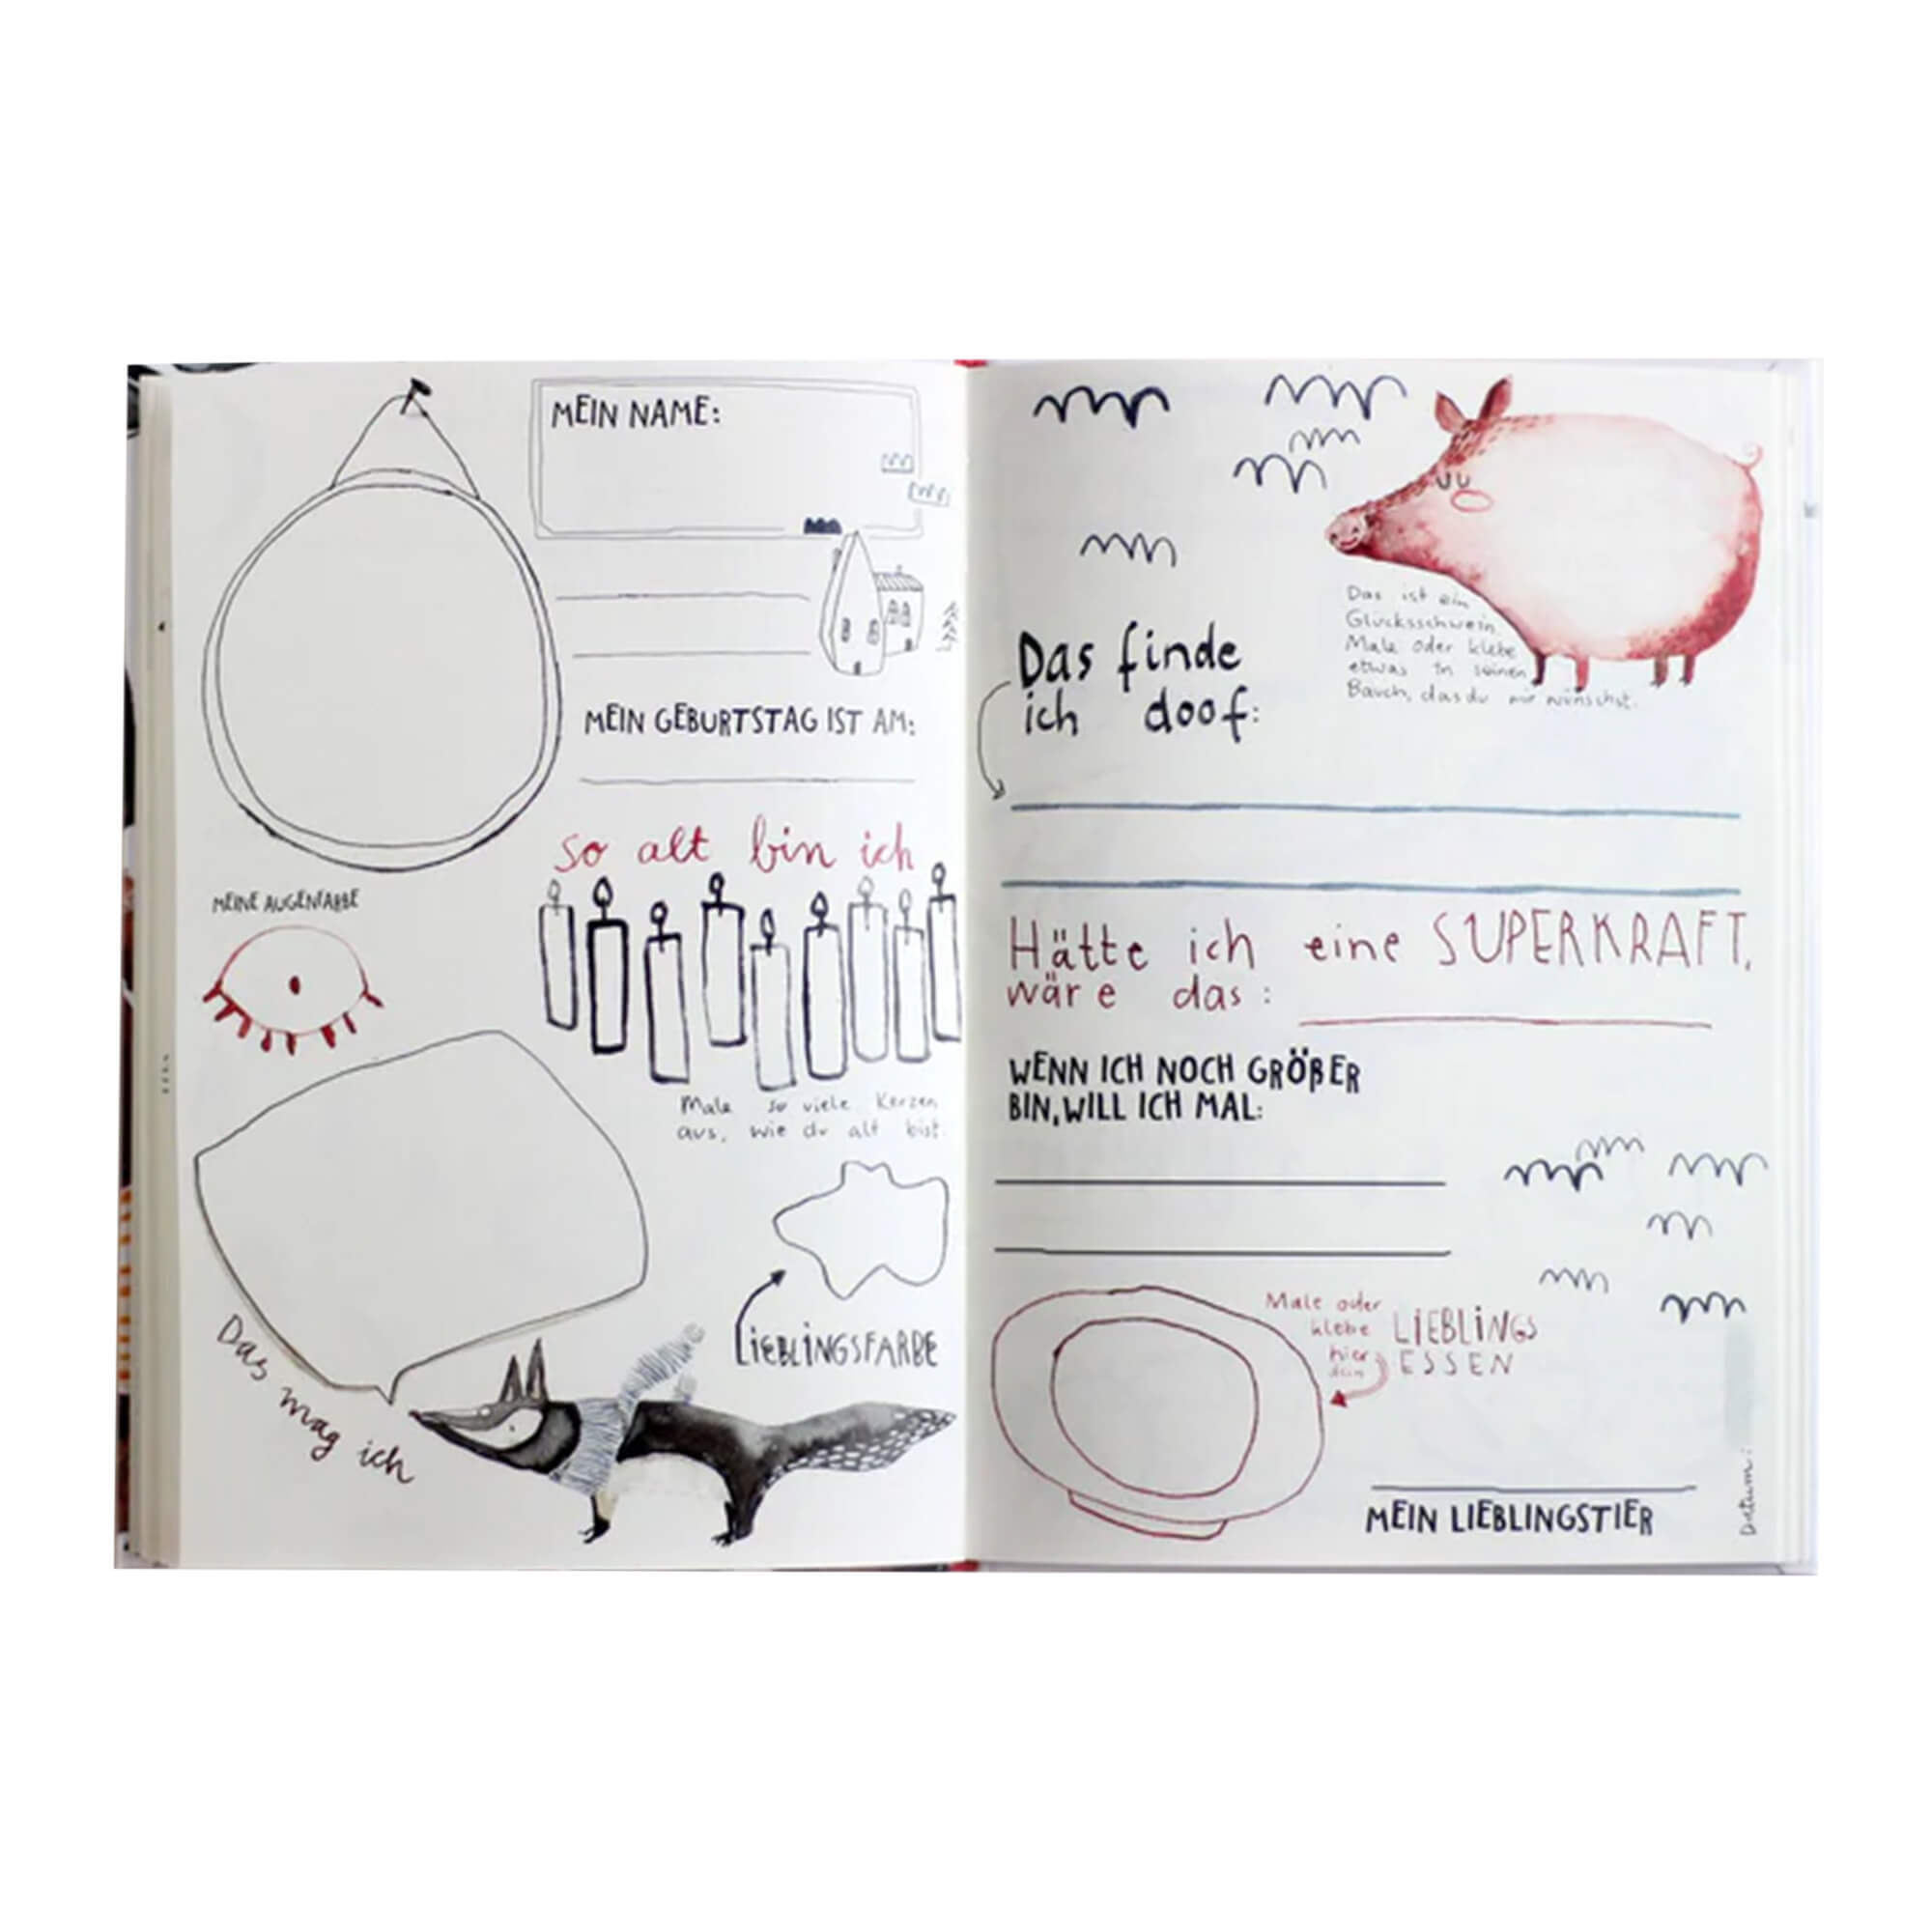 MEIN NAME:
MEIN GEBURTSTAG IST AM:
so alt bin ich
Male so viele Kerzen
aus, wie du alt bist.
MEINE AUGENFARBE
Das mag ich
LIEBLINGSFARBE
Das ist ein
Glücksschwein.
Male oder klebe
etwas in seinen
Bauch, das du mir wünschst.
Das finde
ich doof:
Hätte ich eine SUPERKRAFT,
wäre das:
WENN ICH NOCH GRÖßER
BIN, WILL ICH MAL:
Male oder
klebe
hier
dein
LIEBLINGS
ESSEN
MEIN LIEBLINGSTIER
Datum: